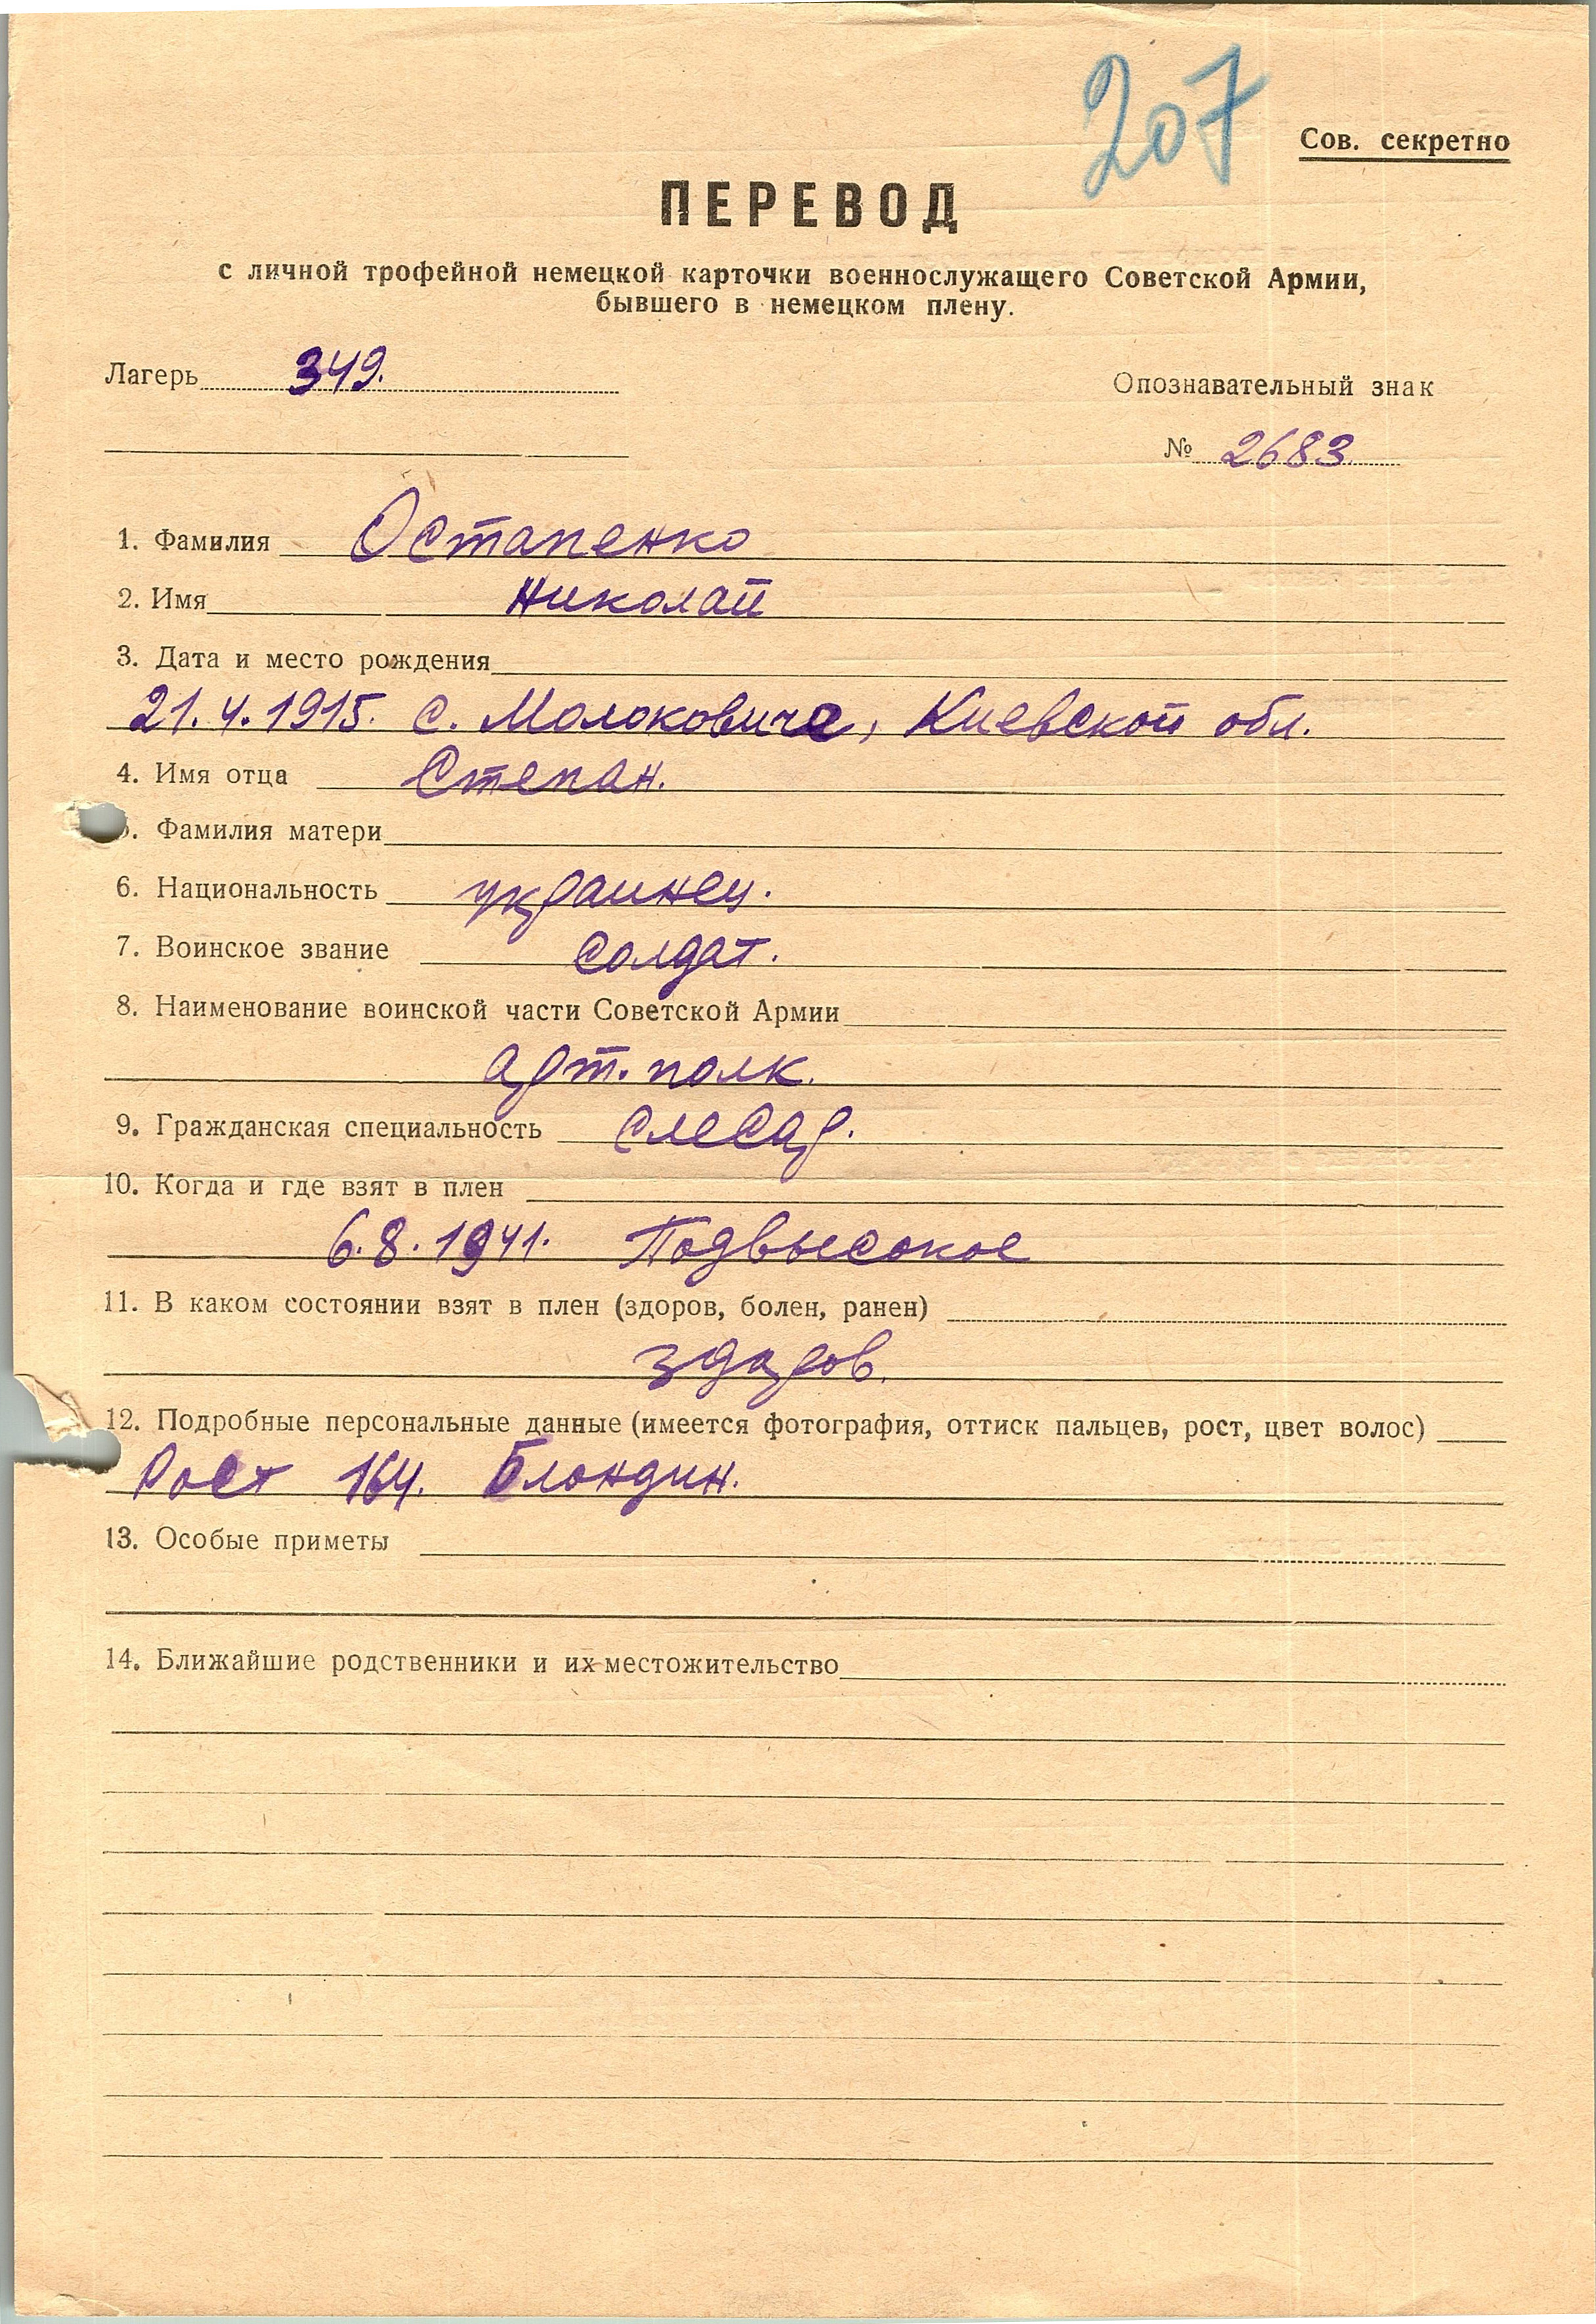 207
Сов. секретно
ПЕРЕВОД
с личной трофейной немецкой карточки военнослужащего Советской Армии,
бывшего в немецком плену.
Лагерь 349.
Опознавательный знак
№ 2683
1. Фамилия Остапенко
2. Имя Николай
3. Дата и место рождения
21.4.1915. с. Молоковиче, Киевской обл.
4. Имя отца Степан.
5. Фамилия матери
6. Национальность украинец.
7. Воинское звание солдат.
8. Наименование воинской части Советской Армии
Арт. полк.
9. Гражданская специальность слесар.
10. Когда и где взят в плен
6.8.1941. Подвысокое
11. В каком состоянии взят в плен (здоров, болен, ранен)
здоров.
12. Подробные персональные данные (имеется фотография, оттиск пальцев, рост, цвет волос)
Рост 164. Блондин.
13. Особые приметы
14. Ближайшие родственники и их местожительство